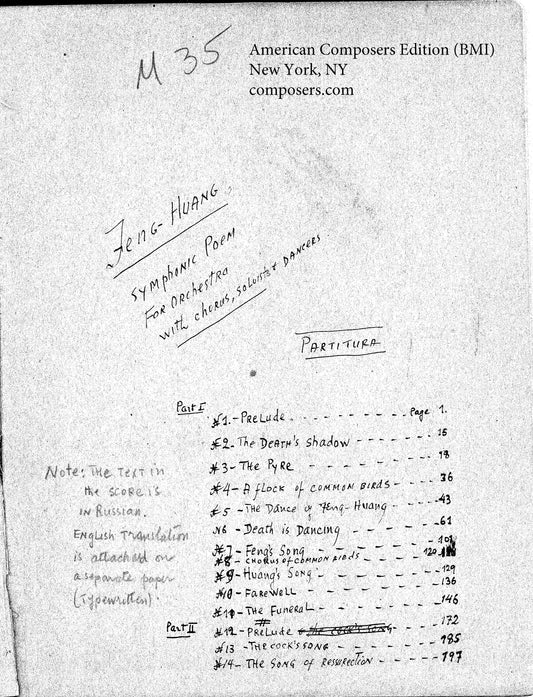 M 35
American Composers Edition (BMI)
New York, NY
composers.com
Feng-Huang
Symphonic Poem
For Orchestra
with chorus, soloists & dancers
Partitura
Part I
#1.- Prelude - - - - - - - - - Page 1.
#2. The Death's shadow - - - - - - - 15
#3 - The Pyre - - - - - - - 18
#4 - A flock of common Birds - - - - 36
#5 - The Dance of Feng-Huang - - - - 43
N6 - Death is Dancing - - - - - 61
#7 - Feng's Song - - - - - - - 101
#8 - Chorus of common Birds - - - - - 120
#9 - Huang's Song - - - - - - - 129
#10 - Farewell - - - - - - - 136
#11 - The Funeral - - - - - - - 146
Part II
#12 - Prelude - - - - - 172
#13 - The Cock's Song - - - - - 185
#14 - The Song of Resurection - - - - 197
Note: The text in
the score is
in Russian.
English Translation
is attached on
a separate paper
(Typewritten).